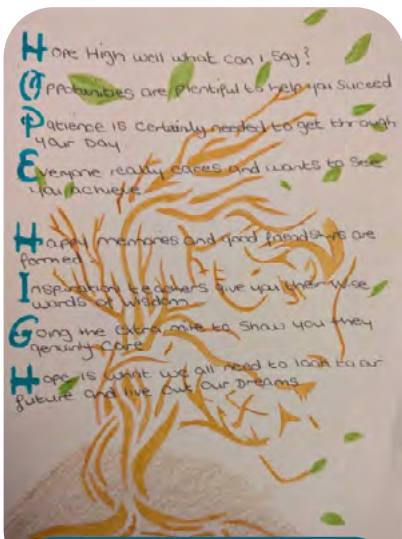 Hope High well what can I say?
Oppotunities are plentiful to help you Suceed
Patience is certainly needed to get through
your Day
Everyone really cares and wants to see
you achieve
Happy memories and good friendships are
formed.
Inspiration teachers give you their wise
words of wisdom
Gong the extra mile to show you they
genuinly Care
Hope is what we all need to look to our
future and live out our Dreams